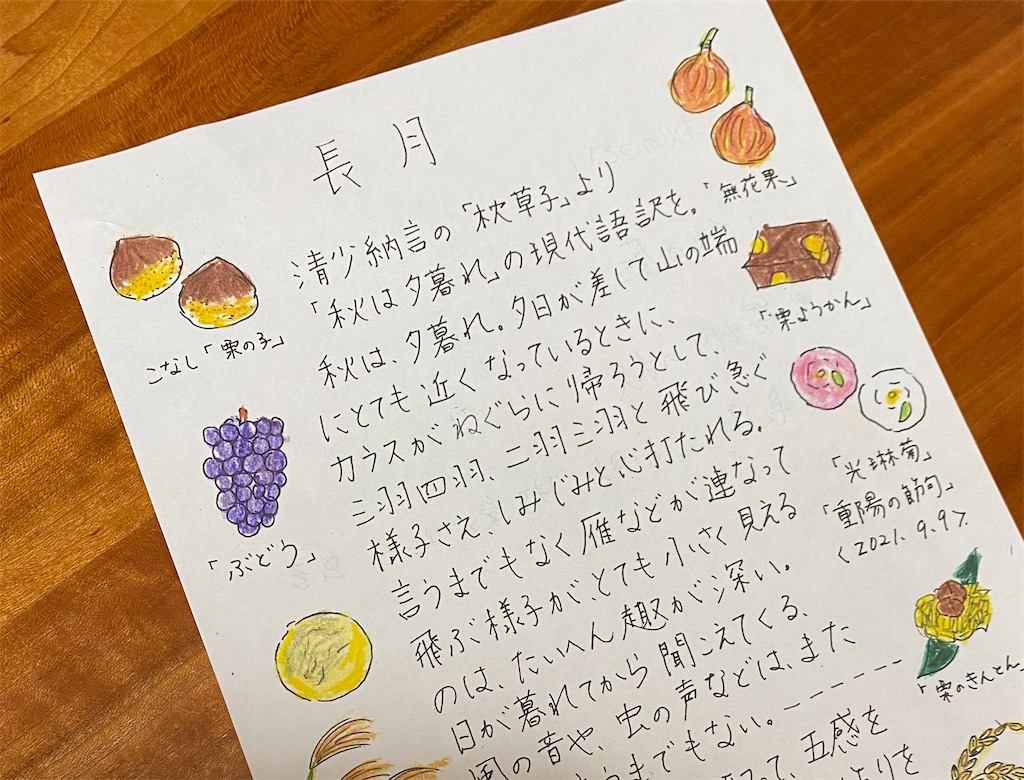 長月
清少納言の「枕草子」より
「秋は夕暮れ」の現代語訳を。
秋は、夕暮れ。夕日が差して山の端
にとても近くなっているときに、
カラスがねぐらに帰ろうとして、
三羽四羽、二羽三羽と飛び急ぐ
様子さえ、しみじみと心打たれる。
言うまでもなく雁などが連なって
飛ぶ様子が、とても小さく見える
のは、たいへん趣が深い。
日が暮れてから聞こえてくる、
風の音や、虫の声などは、また
うまでもない。------
って、五感を
よりを
こなし「栗の子」
「ぶどう」
「無花果」
「栗ようかん」
「光琳菊」
「重陽の節句」
<2021.9.9%
「栗のきんとん